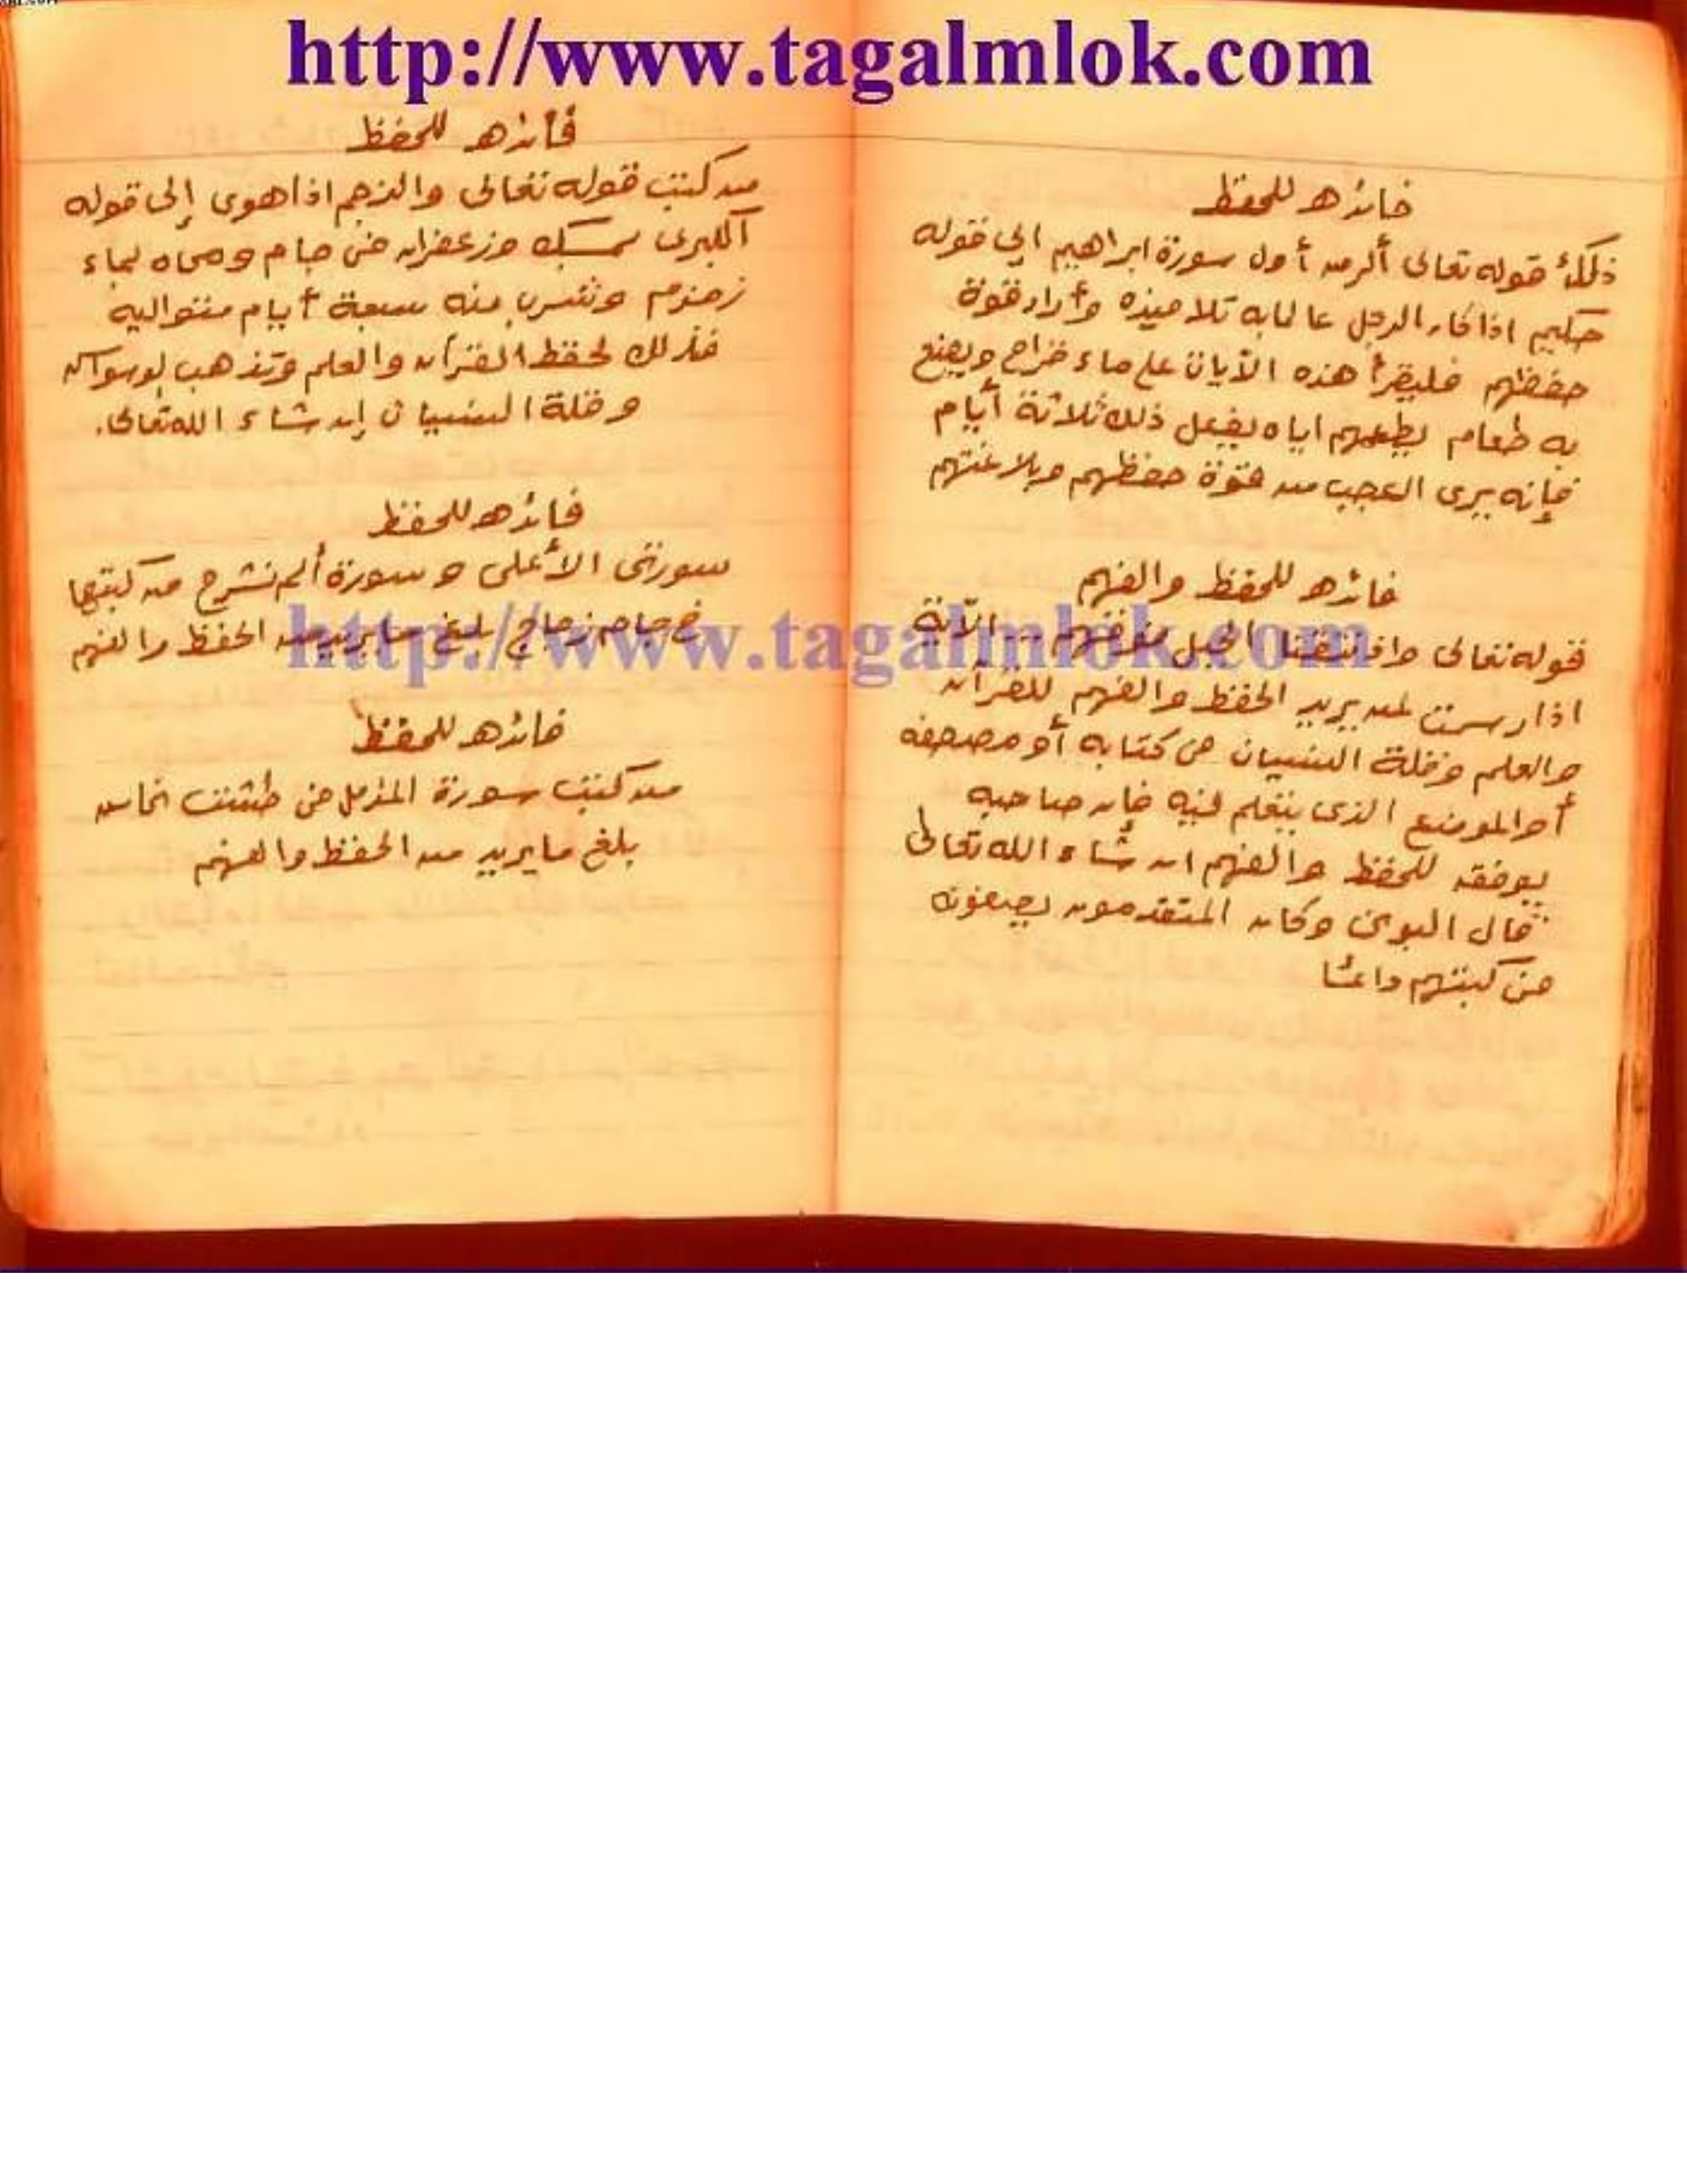 http://www.tagalmlok.com
فائده للحفظ
ذلك قوله تعالى ألر من أول سورة ابراهيم الى قوله
حكيم اذا كان الرجل عالما به تلاميذه وأراد قوة
حفظهم فليقرأ هذه الآيات على ماء قراح ويصنع
به طعام يطعمهم اياه يفعل ذلك ثلاثة أيام
فإنه يرى العجب من قوة حفظهم وبلاغتهم
فائده للحفظ والفهم
قوله تعالى واذ نتقنا الجبل فوقهم ... الآية
اذا رسمت لمن يريد الحفظ والفهم للقرآن
والعلم وقلة النسيان فى كتابه أو مصحفه
أو الموضع الذى يتعلم فيه فإن صاحبه
يوفقه للحفظ والفهم ان شاء الله تعالى
قال البونى وكان المتقدمون يضعونه
فى كتبهم دائما
فائده للحفظ
من كتب قوله تعالى والنجم اذا هوى إلى قوله
الكبرى بمسك وزعفران فى جام ومحاه بماء
زمزم وشرب منه سبعة أيام متواليه
فذلك لحفظ القرآن والعلم وتذهب لوسواس
وقلة النسيان إن شاء الله تعالى.
فائده للحفظ
سورتى الأعلى وسورة ألم نشرح من كتبها
فى جام زجاج بلغ ما يريد من الحفظ والفهم
http://www.tagalmlok.com
فائده للحفظ
من كتب سورة المزمل فى طشت نحاس
بلغ ما يريد من الحفظ والفهم